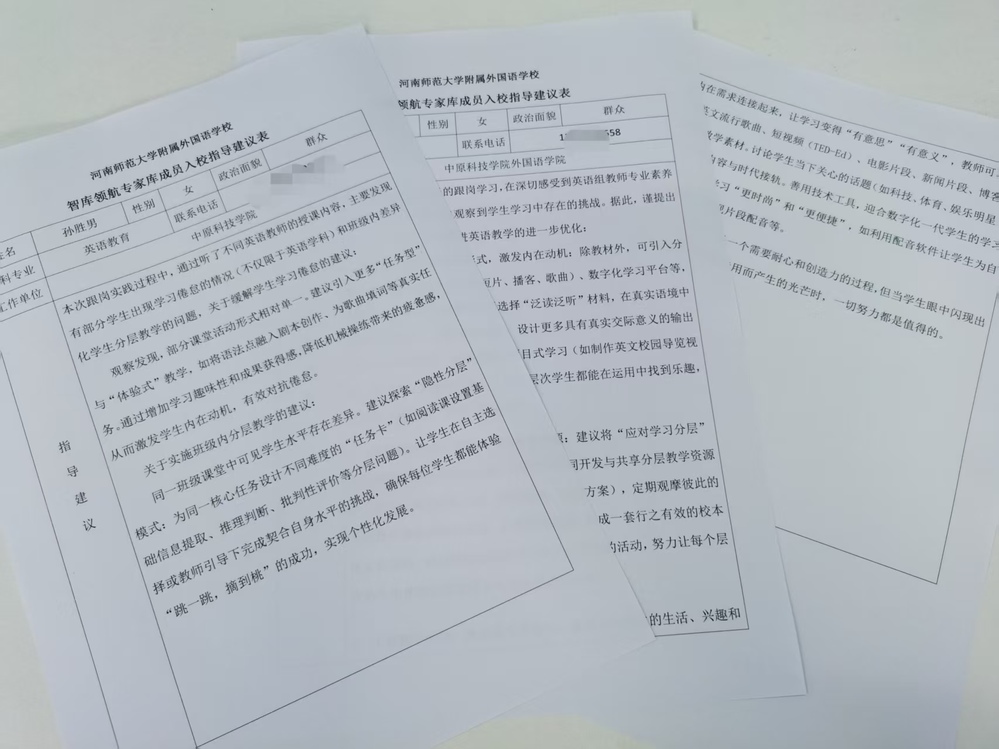 河南师范大学附属外国语学校
智库领航专家库成员入校指导建议表
姓名
孙胜男
性别
女
政治面貌
群众
科专业
英语教育
联系电话
工作单位
中原科技学院
指导建议
本次跟岗实践过程中，通过听了不同英语教师的授课内容，主要发现
有部分学生出现学习倦怠的情况（不仅限于英语学科）和班级内差异
化学生分层教学的问题，关于缓解学生学习倦怠的建议：
观察发现，部分课堂活动形式相对单一。建议引入更多“任务型”
与“体验式”教学，如将语法点融入剧本创作、为歌曲填词等真实任
务。通过增加学习趣味性和成果获得感，降低机械操练带来的疲惫感，
从而激发学生内在动机，有效对抗倦怠。
关于实施班级内分层教学的建议：
同一班级课堂中可见学生水平存在差异。建议探索“隐性分层”
模式：为同一核心任务设计不同难度的“任务卡”（如阅读课设置基
础信息提取、推理判断、批判性评价等分层问题）。让学生在自主选
择或教师引导下完成契合自身水平的挑战，确保每位学生都能体验
“跳一跳，摘到桃”的成功，实现个性化发展。
河南师范大学附属外国语学校
领航专家库成员入校指导建议表
性别
女
政治面貌
群众
联系电话
1
558
中原科技学院外国语学院
的跟岗学习，在深切感受到英语组教师专业素养
观察到学生学习中存在的挑战。据此，谨提出
进英语教学的进一步优化：
式，激发内在动机：除教材外，可引入分
短片、播客、歌曲）、数字化学习平台等，
选择“泛读泛听”材料，在真实语境中
设计更多具有真实交际意义的输出
目式学习（如制作英文校园导览视
层次学生都能在运用中找到乐趣，
：建议将“应对学习分层”
同开发与共享分层教学资源
方案），定期观摩彼此的
成一套行之有效的校本
的活动，努力让每个层
的生活、兴趣和
内在需求连接起来，让学习变得“有意思”“有意义”，教师可
英文流行歌曲、短视频（TED-Ed）、电影片段、新闻片段、博客
教学素材。讨论学生当下关心的话题（如科技、体育、娱乐明星
内容与时代接轨。善用技术工具，迎合数字化一代学生的学习
学习“更时尚”和“更便捷”，如利用配音软件让学生为自
影片段配音等。
一个需要耐心和创造力的过程，但当学生眼中闪现出
用而产生的光芒时，一切努力都是值得的。